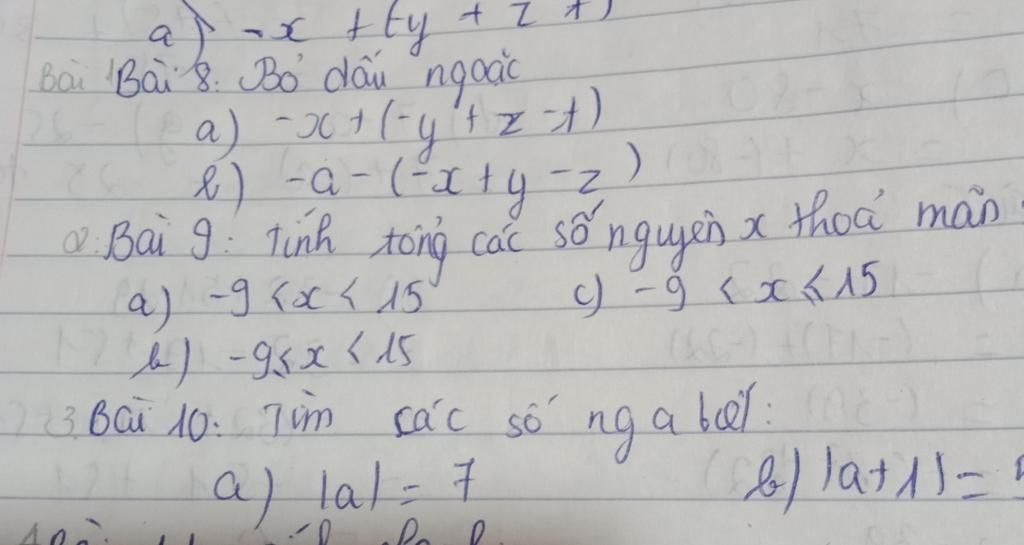 a) -x + (-y + z +
Bài Bài 8: Bỏ dấu ngoặc
a) -x + (-y + z - t)
b) -a - (-x + y - z)
2. Bài 9: Tính tổng các số nguyên x thoả mãn:
a) -9 < x < 15 c) -9 < x ≤ 15
b) -9 ≤ x < 15
3. Bài 10: Tìm các số ng a biết:
a) |a| = 7 b) |a + 1| =